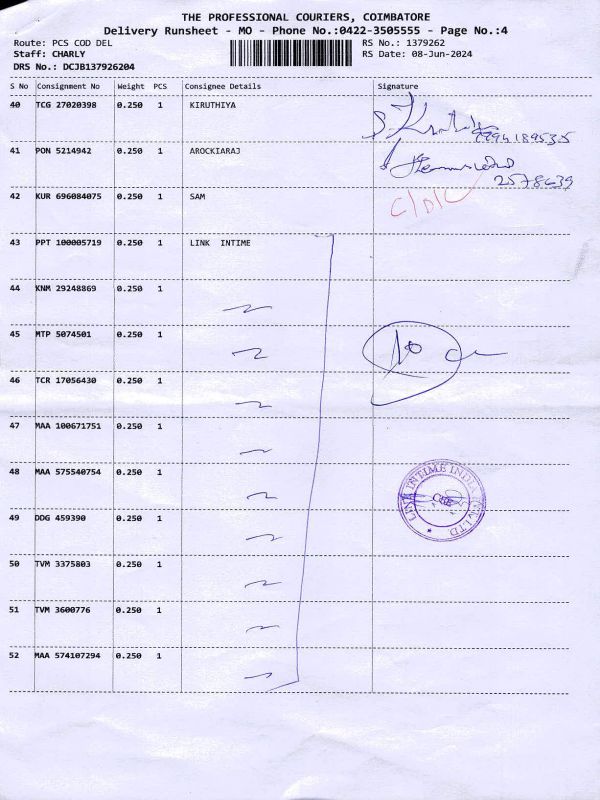 THE PROFESSIONAL COURIERS, COIMBATORE
Delivery Runsheet - MO - Phone No.:0422-3505555 - Page No.:4
Route: PCS COD DEL RS No.: 1379262
Staff: CHARLY RS Date: 08-Jun-2024
DRS No.: DCJB137926204
S No Consignment No Weight PCS Consignee Details Signature
40 TCG 27020398 0.250 1 KIRUTHIYA
41 PON 5214942 0.250 1 AROCKIARAJ
2578639
42 KUR 696084075 0.250 1 SAM
43 PPT 100005719 0.250 1 LINK INTIME
44 KNM 29248869 0.250 1
45 MTP 5074501 0.250 1
46 TCR 17056430 0.250 1
47 MAA 100671751 0.250 1
48 MAA 575540754 0.250 1
LINK INTIME INDIA PVT LTD
49 DDG 459390 0.250 1
50 TVM 3375803 0.250 1
51 TVM 3600776 0.250 1
52 MAA 574107294 0.250 1